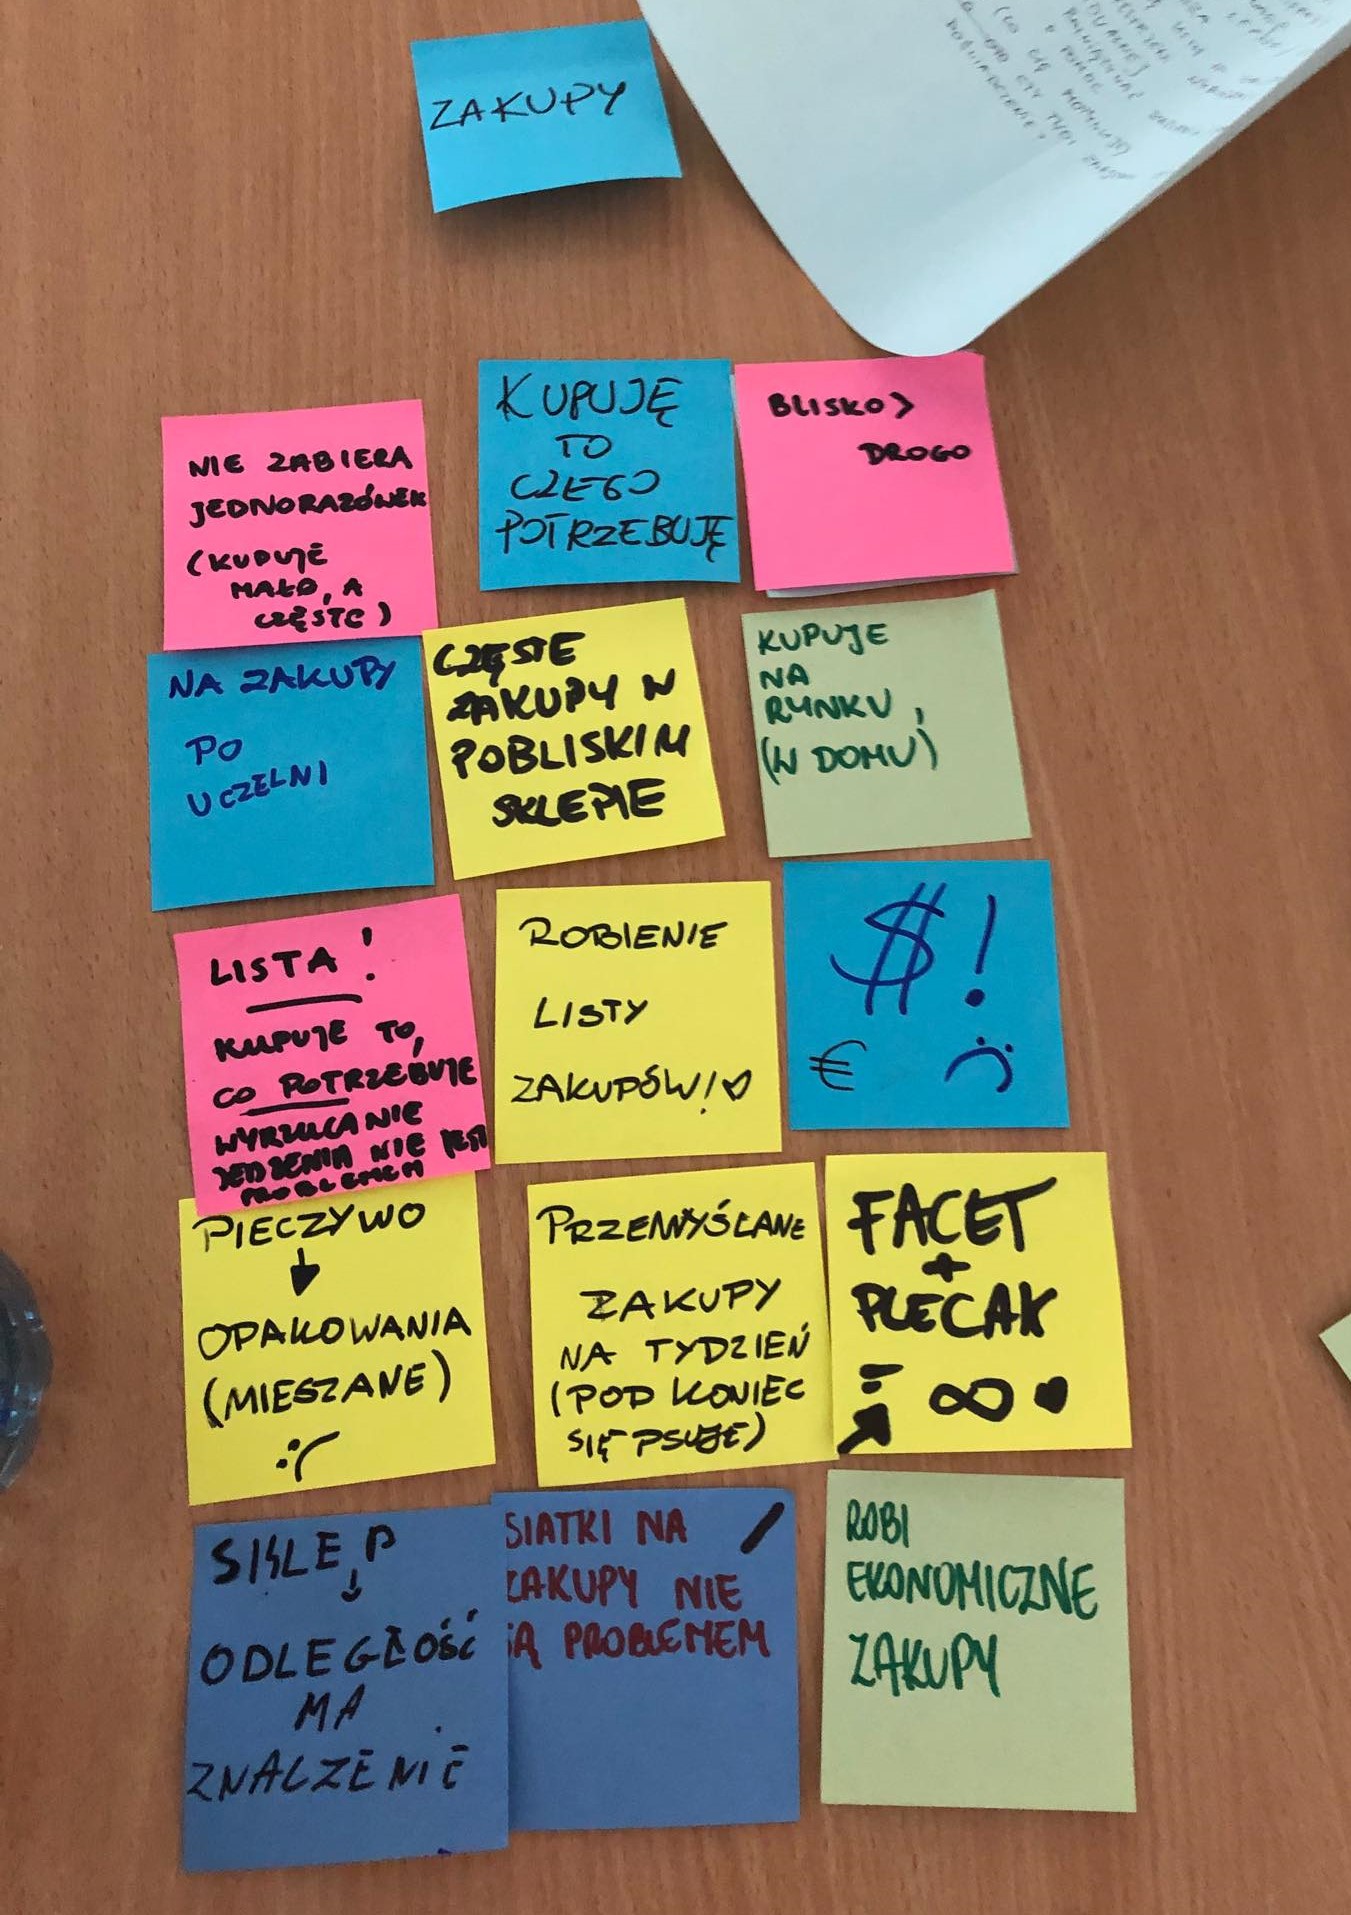 ZAKUPY
NIE ZABIERA
JEDNORAZÓWEK
(KUPUJE
MAŁO, A
CZĘSTO)
KUPUJĘ
TO
CZEGO
POTRZEBUJĘ
BLISKO>
DROGO
NA ZAKUPY
PO
UCZELNI
CZĘSTE
ZAKUPY W
POBLISKIM
SKLEPIE
KUPUJE
NA
RYNKU,
(W DOMU)
LISTA!
KUPUJE TO,
CO POTRZEBUJE
WYRZUCANIE
JEDZENIA NIE JEST
PROBLEMEM
ROBIENIE
LISTY
ZAKUPÓW!♡
$!
€ :(
PIECZYWO
↓
OPAKOWANIA
(MIESZANE)
:(
PRZEMYŚLANE
ZAKUPY
NA TYDZIEŃ
(POD KONIEC
SIĘ PSUJE)
FACET
+
PLECAK
= ∞
SKLEP
↓
ODLEGŁOŚĆ
MA
ZNACZENIE
SIATKI NA
ZAKUPY NIE
SĄ PROBLEMEM
ROBI
EKONOMICZNE
ZAKUPY